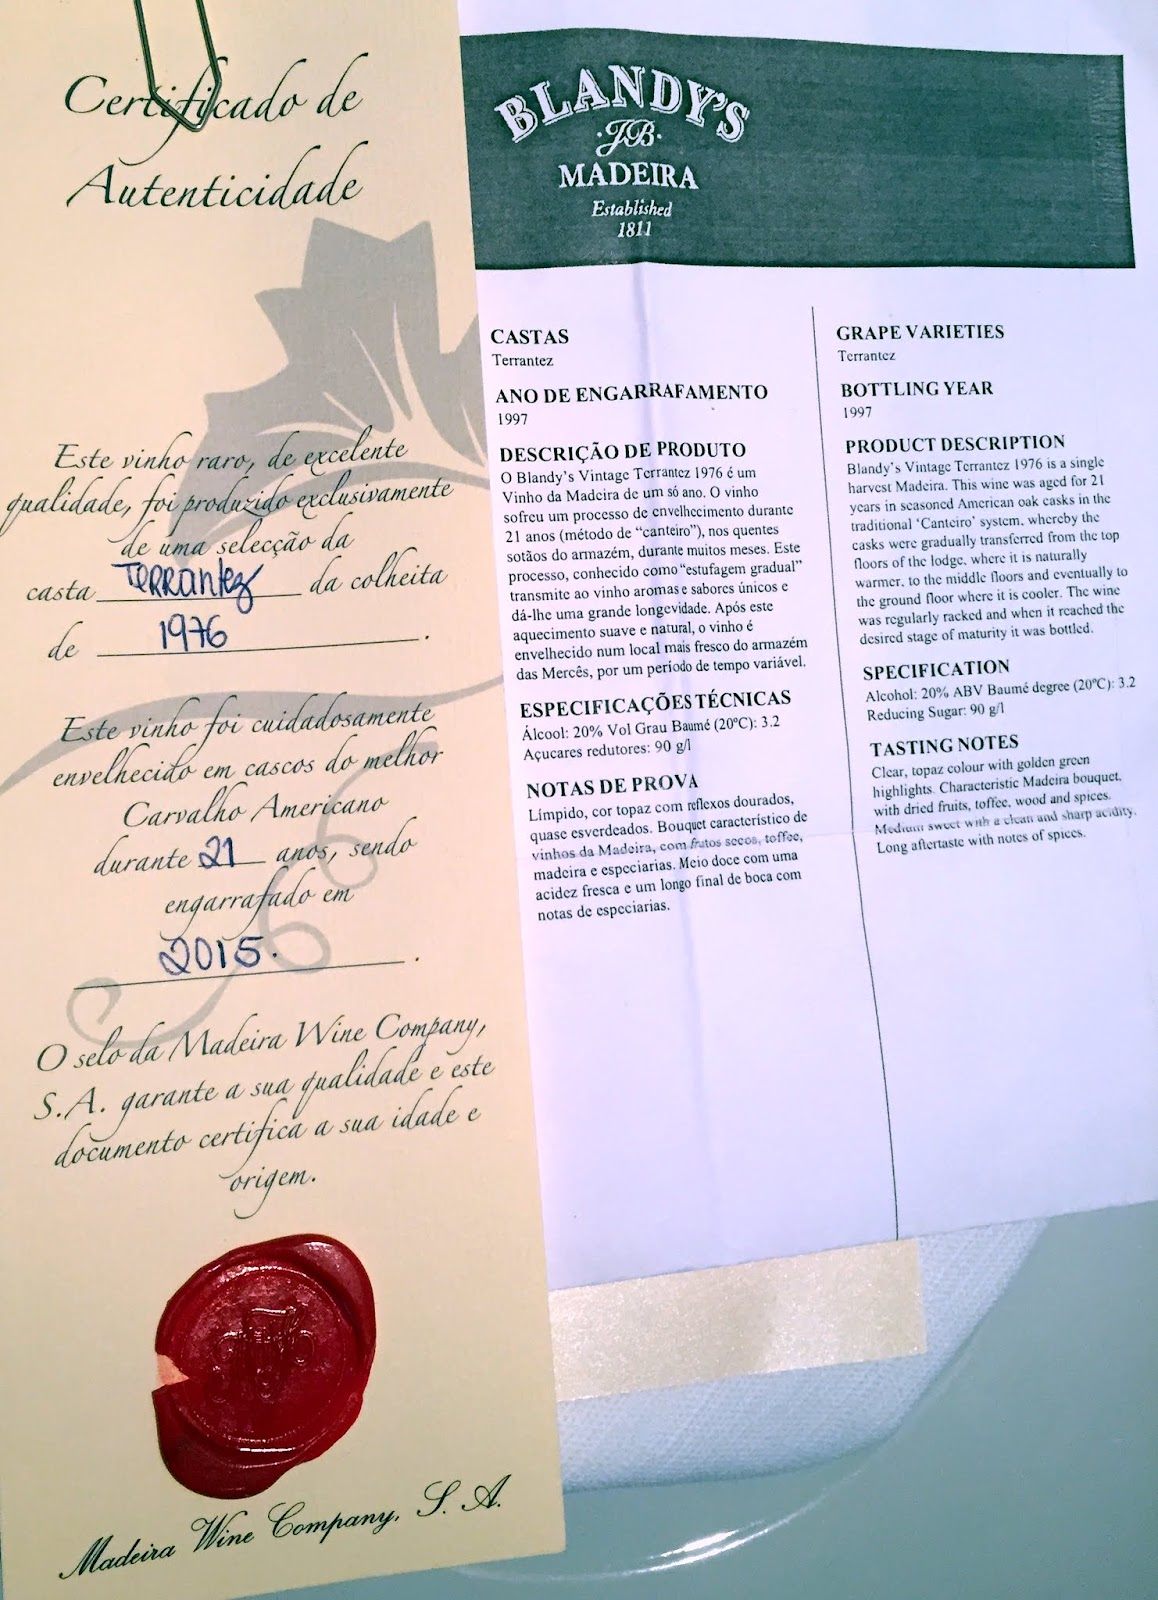 Certificado de
Autenticidade
Este vinho raro, de excelente
qualidade, foi produzido exclusivamente
de uma selecção da
casta Terrantez da colheita
de 1976.
Este vinho foi cuidadosamente
envelhecido em cascos do melhor
Carvalho Americano
durante 21 anos, sendo
engarrafado em
2015..
O selo da Madeira Wine Company,
S.A. garante a sua qualidade e este
documento certifica a sua idade e
origem.
Madeira Wine Company, S. A.
BLANDY'S
·JB·
MADEIRA
Established
1811
CASTAS
Terrantez
ANO DE ENGARRAFAMENTO
1997
DESCRIÇÃO DE PRODUTO
O Blandy's Vintage Terrantez 1976 é um
Vinho da Madeira de um só ano. O vinho
sofreu um processo de envelhecimento durante
21 anos (método de "canteiro"), nos quentes
sotãos do armazém, durante muitos meses. Este
processo, conhecido como "estufagem gradual"
transmite ao vinho aromas e sabores únicos e
dá-lhe uma grande longevidade. Após este
aquecimento suave e natural, o vinho é
envelhecido num local mais fresco do armazém
das Mercês, por um período de tempo variável.
ESPECIFICAÇÕES TÉCNICAS
Álcool: 20% Vol Grau Baumé (20ºC): 3.2
Açucares redutores: 90 g/l
NOTAS DE PROVA
Límpido, cor topaz com reflexos dourados,
quase esverdeados. Bouquet característico de
vinhos da Madeira, com frutos secos, toffee,
madeira e especiarias. Meio doce com uma
acidez fresca e um longo final de boca com
notas de especiarias.
GRAPE VARIETIES
Terrantez
BOTTLING YEAR
1997
PRODUCT DESCRIPTION
Blandy's Vintage Terrantez 1976 is a single
harvest Madeira. This wine was aged for 21
years in seasoned American oak casks in the
traditional 'Canteiro' system, whereby the
casks were gradually transferred from the top
floors of the lodge, where it is naturally
warmer, to the middle floors and eventually to
the ground floor where it is cooler. The wine
was regularly racked and when it reached the
desired stage of maturity it was bottled.
SPECIFICATION
Alcohol: 20% ABV Baumé degree (20ºC): 3.2
Reducing Sugar: 90 g/l
TASTING NOTES
Clear, topaz colour with golden green
highlights. Characteristic Madeira bouquet,
with dried fruits, toffee, wood and spices.
Medium sweet with a clean and sharp acidity.
Long aftertaste with notes of spices.